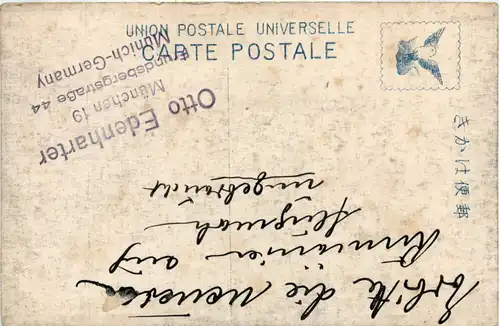 UNION POSTALE UNIVERSELLE
CARTE POSTALE
きかは便郵
Otto Edenharter
München 19
Frundsbergstraße 44
Munich-Germany
Erbitte die neuesten
auf
ungebraucht